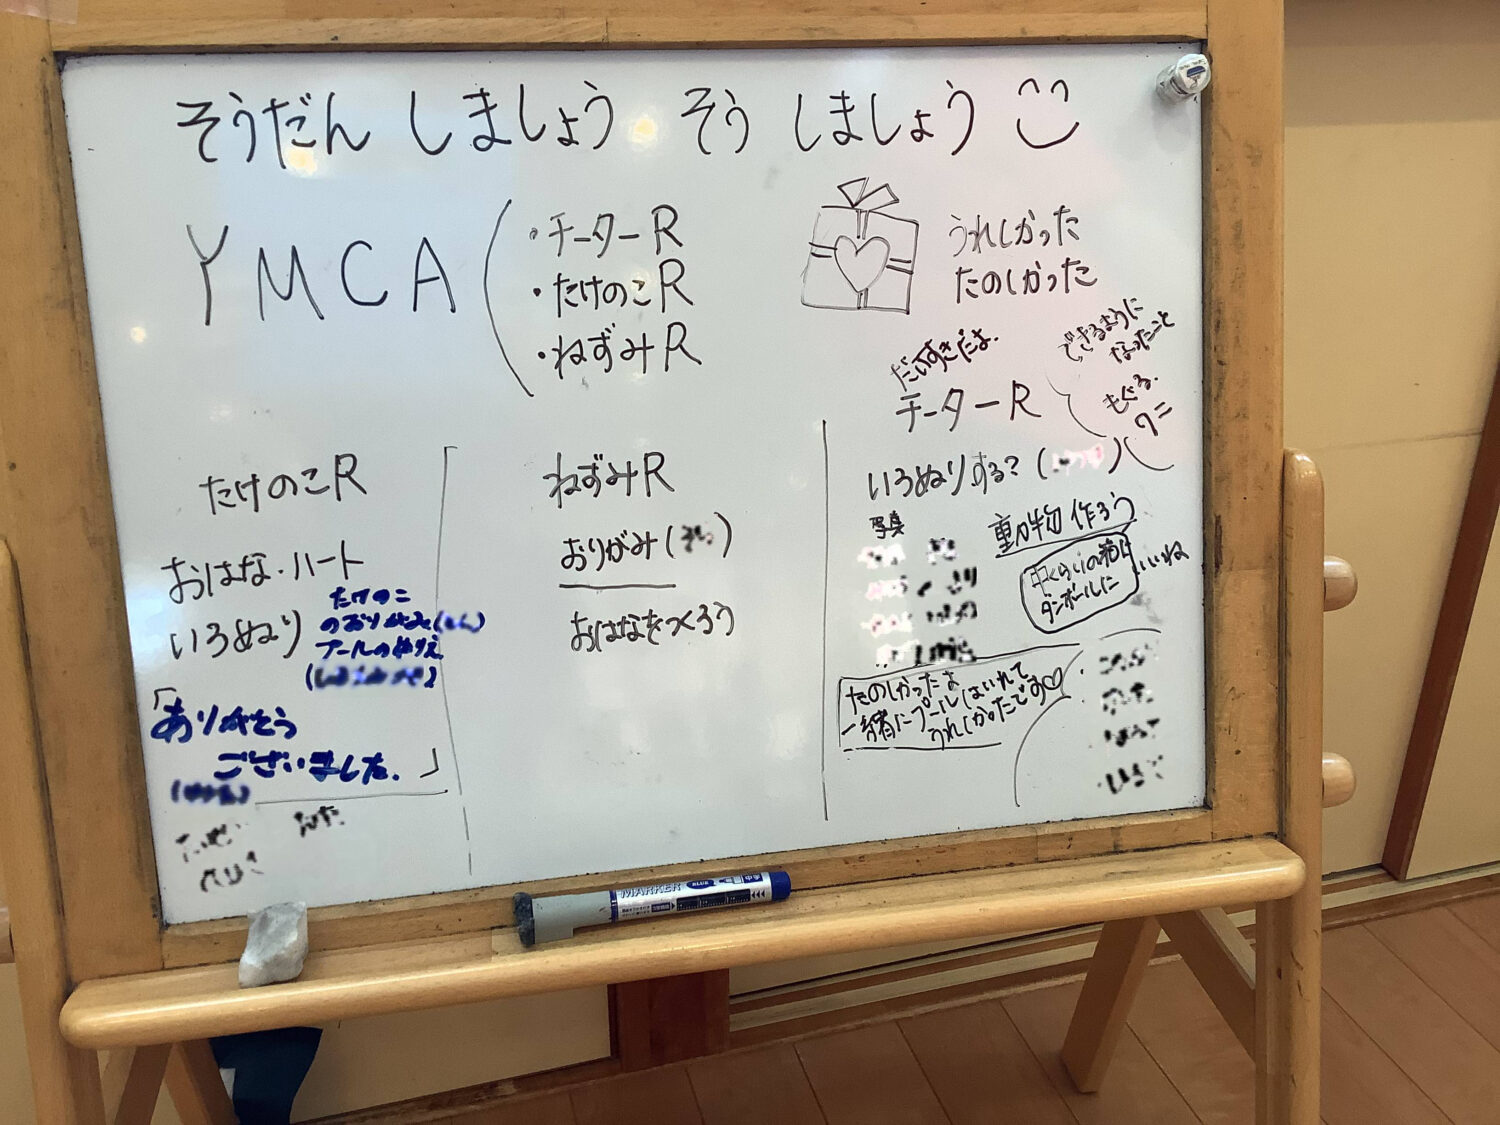 そうだん しましょう そう しましょう
YMCA
・チーターR
・たけのこR
・ねずみR
うれしかった
たのしかった
だいすきだよ.
チーターR
できるように
なったこと
もぐる.
ワニ
たけのこR
おはな・ハート
いろぬり
たけのこ
のおりがみ
プールのぬりえ
「ありがとう
ございました.」
ねずみR
おりがみ
おはなをつくろう
いろぬりする?
写真
動物 作ろう
中くらいの箱
ダンボールに
いいね
たのしかったよ
一緒にプールはいれて
うれしかったです♡
MARKER
BLUE
中字